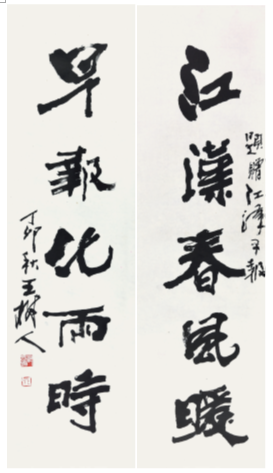 江漢春風暖
題贈江津日報
早報化雨時
丁卯秋王樹人